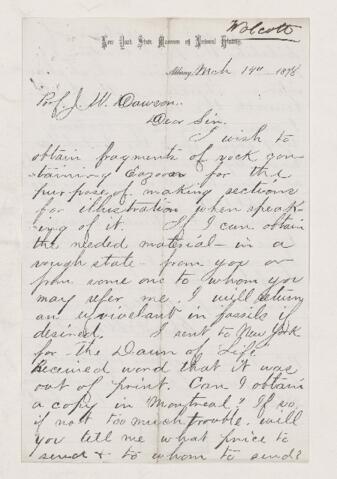 Wolcott
New York State Museum of Natural History,
Albany, Mch 14th 1878
Prof. J. W. Dawson.
Dear Sir.
I wish to
obtain fragments of rock con-
taining Eozoon for the
purpose, of making sections
for illustration when speak-
ing of it. If I can obtain
the needed material - in a
rough state - from you or
from some one to whom you
may refer me. I will return
an equivelant in fossils if
desired. I sent to New York
for the Dawn of Life
Received word that it was
out of print. Can I obtain
a copy in Montreal? If so,
if not too much trouble. will
you tell me what price to
send & to whom to send?